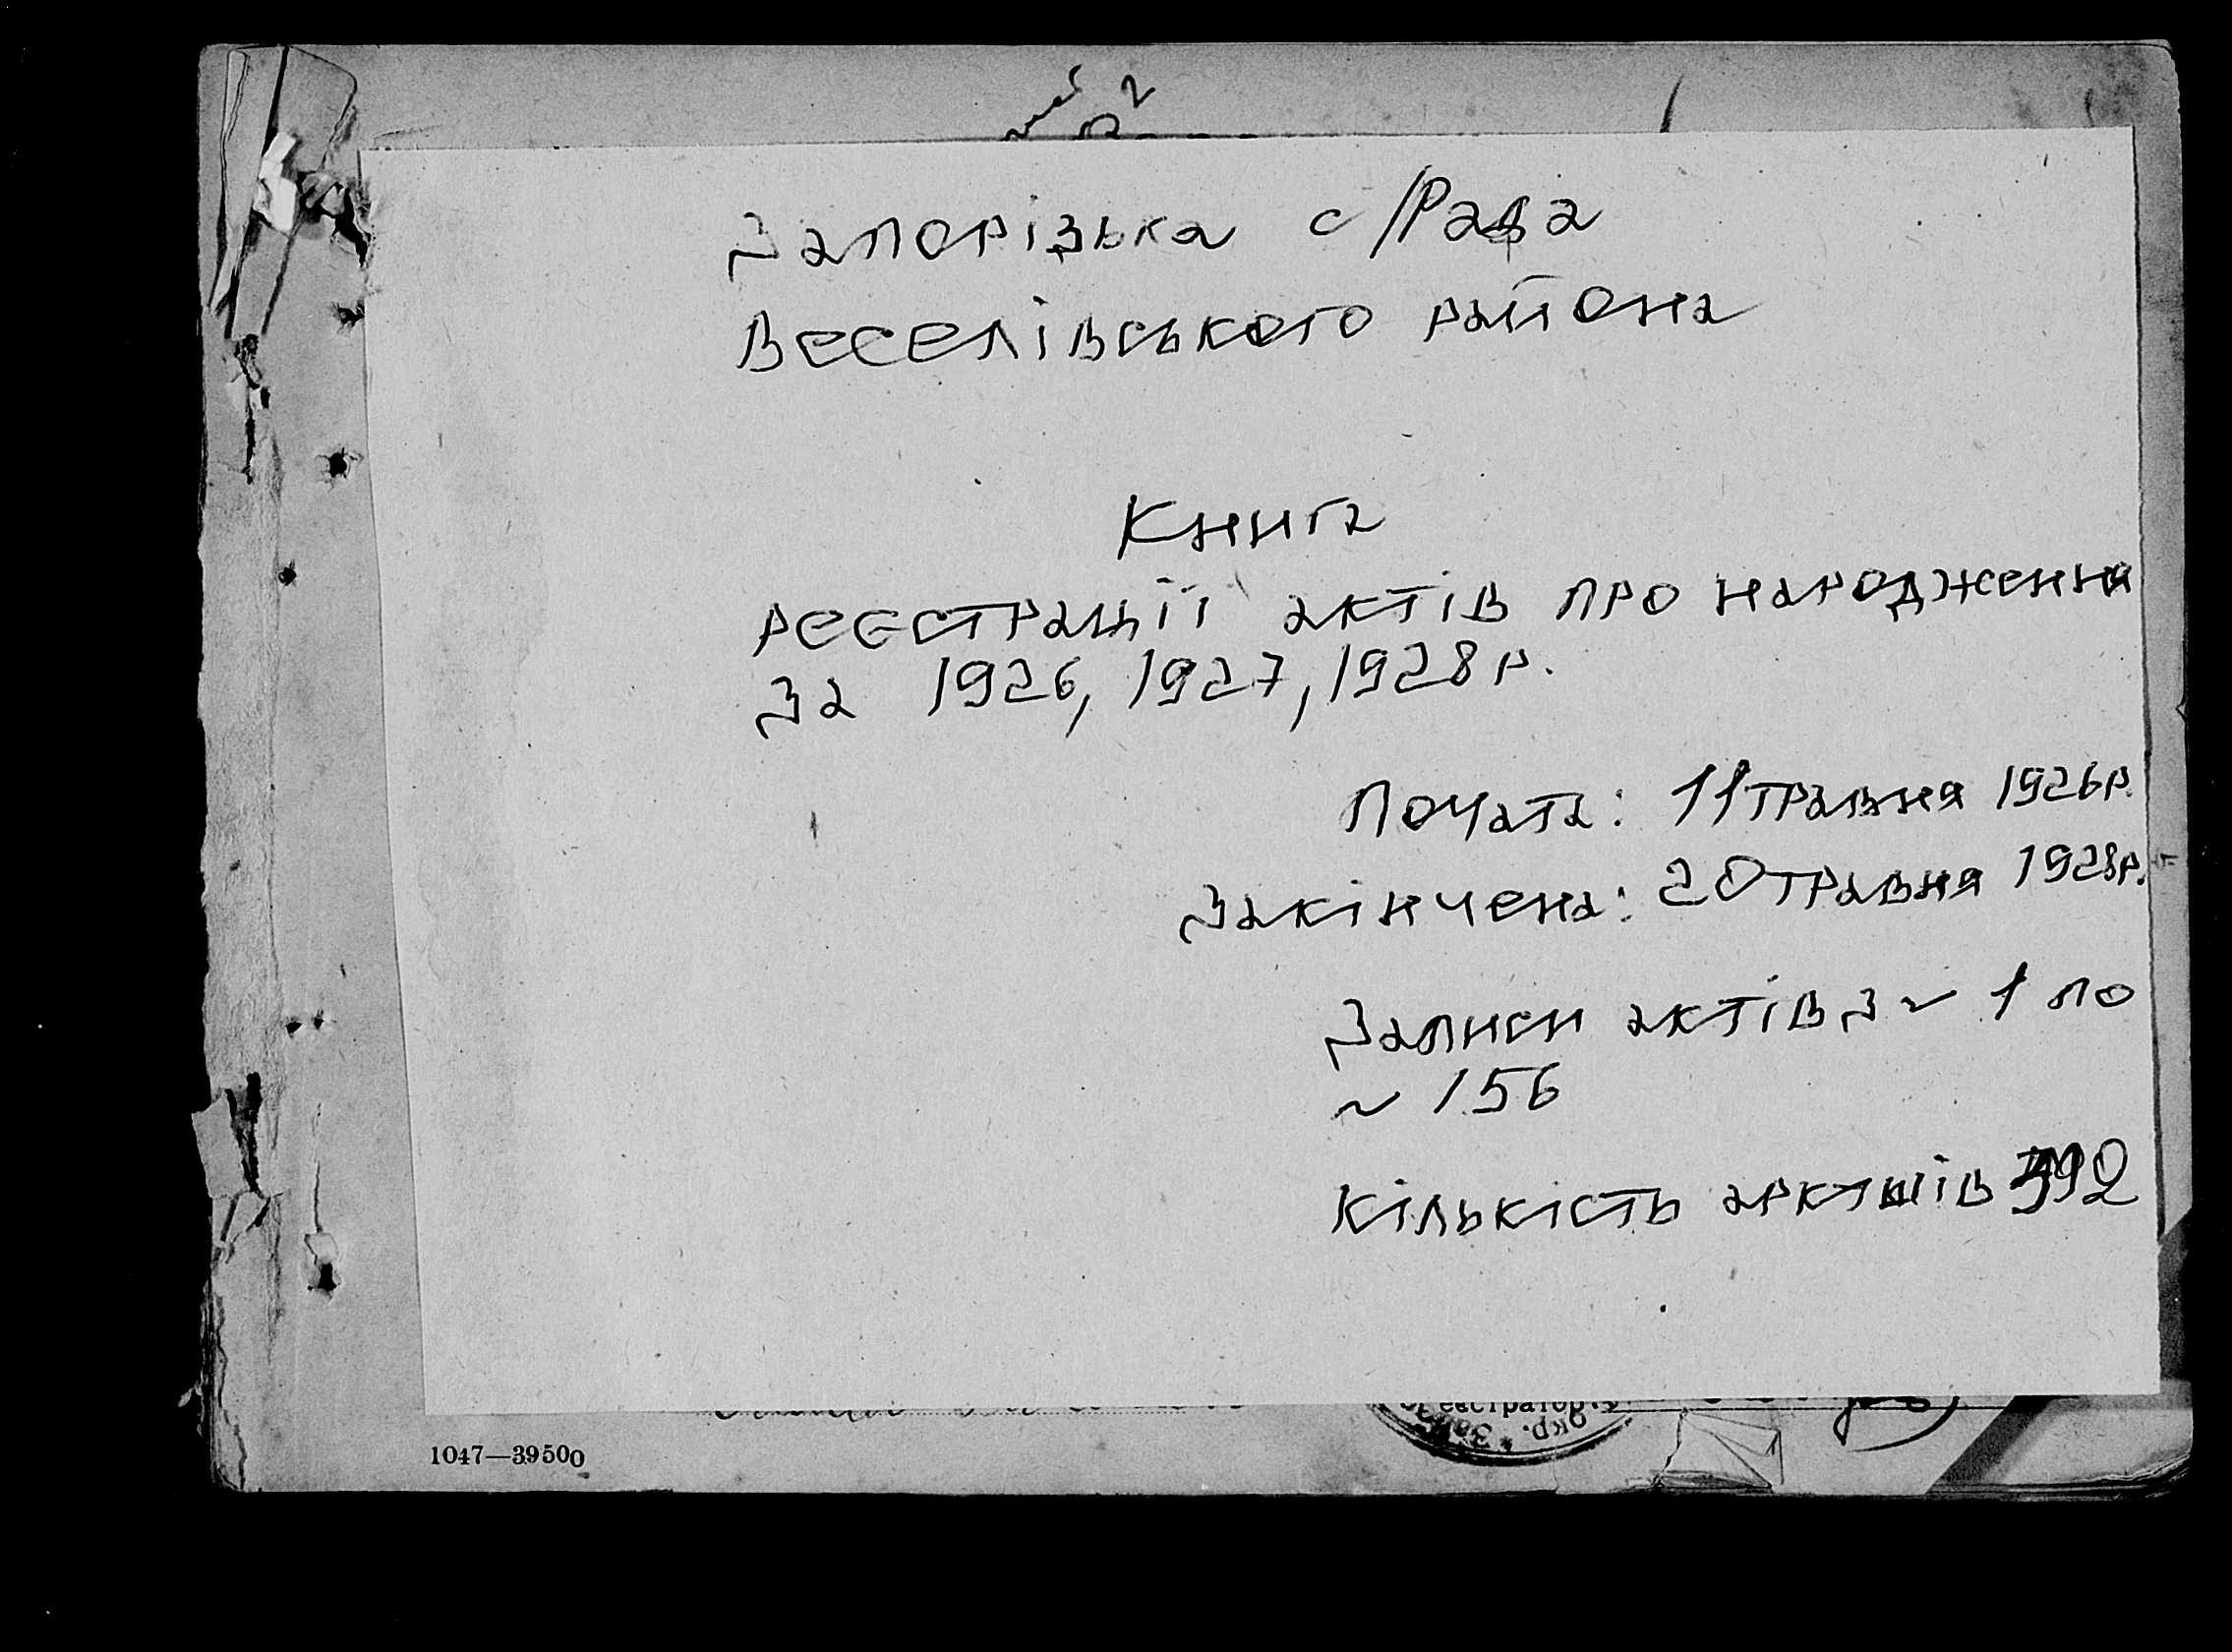 Запорізька с/Рада
Веселівського района
Книга
реєстрації актів про народження
за 1926, 1927, 1928 р.
Почата: 11 травня 1926 р.
Закінчена: 20 травня 1928 р.
Записи актів з ~ 1 по
~ 156
Кількість аркушів
еєстратор
окр.
1047—39500